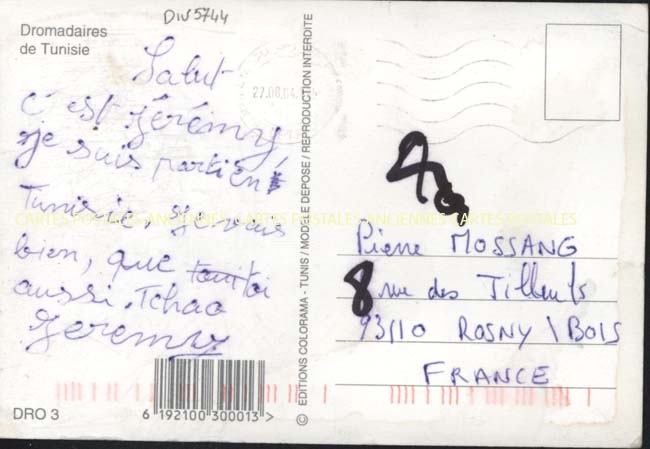 DIV 5744
Dromadaires
de Tunisie
Salut
C'est Jérémy,
je suis parti en
Tunisie, je vais
bien, que tout toi
aussi. Tchao
Jeremy
DRO 3
6 192100 300013 >
© EDITIONS COLORAMA - TUNIS / MODELE DEPOSE / REPRODUCTION INTERDITE
27.08.04
CARTES POSTALES ANCIENNES CARTES POSTALES ANCIENNES CARTES POSTALES
Pierre MOSSANG
8 rue des Tilleuls
93110 ROSNY \ BOIS
FRANCE